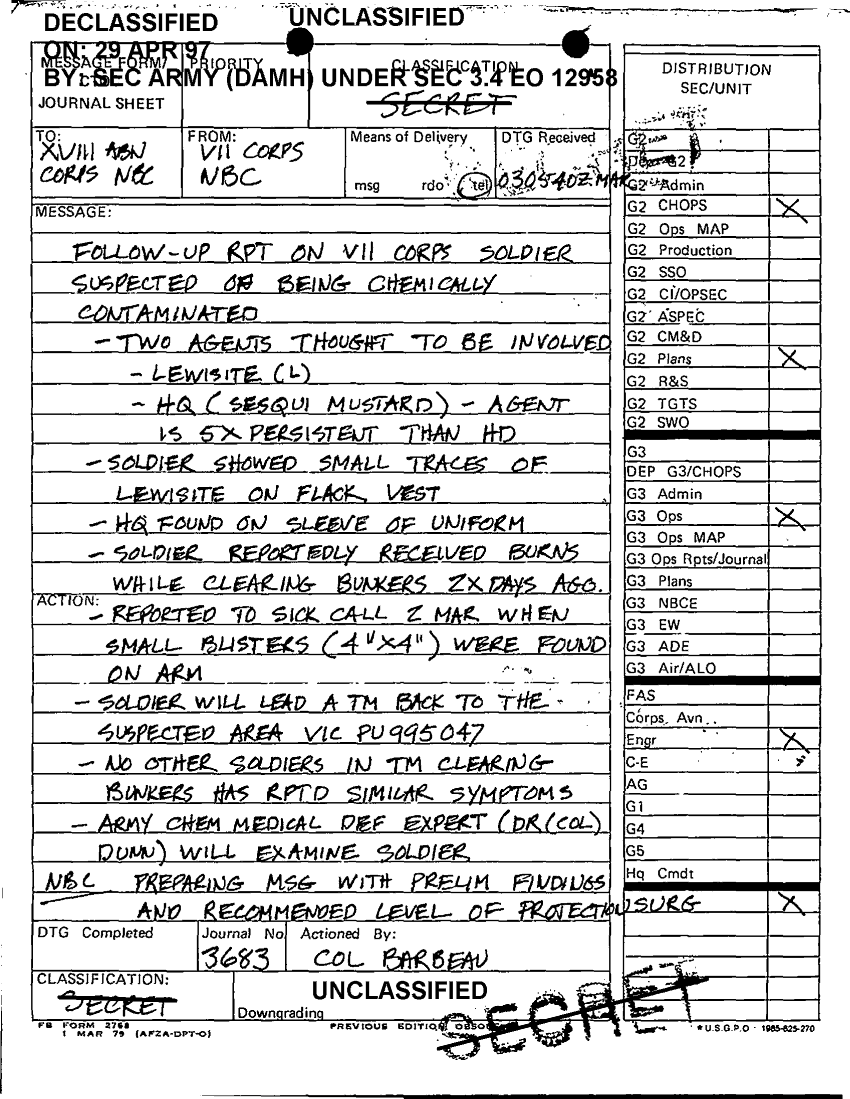 DECLASSIFIED
UNCLASSIFIED
ON: 29 APR 97
BY: SEC ARMY (DAMH) UNDER SEC 3.4 EO 12958
MESSAGE FORM/
JOURNAL SHEET
PRIORITY
CLASSIFICATION
SECRET
TO:
XVIII ABN
CORPS NBC
FROM:
VII CORPS
NBC
Means of Delivery
msg rdo tel
DTG Received
030540Z MAR
MESSAGE:
FOLLOW-UP RPT ON VII CORPS SOLDIER
SUSPECTED OF BEING CHEMICALLY
CONTAMINATED
- TWO AGENTS THOUGHT TO BE INVOLVED
- LEWISITE (L)
- HQ (SESQUI MUSTARD) - AGENT
IS 5X PERSISTENT THAN HD
- SOLDIER SHOWED SMALL TRACES OF
LEWISITE ON FLACK VEST
- HQ FOUND ON SLEEVE OF UNIFORM
- SOLDIER REPORTEDLY RECEIVED BURNS
WHILE CLEARING BUNKERS 2X DAYS AGO.
ACTION:
- REPORTED TO SICK CALL 2 MAR WHEN
SMALL BLISTERS (4"X4") WERE FOUND
ON ARM
- SOLDIER WILL LEAD A TM BACK TO THE
SUSPECTED AREA VIC PU995047
- NO OTHER SOLDIERS IN TM CLEARING
BUNKERS HAS RPTD SIMILAR SYMPTOMS
- ARMY CHEM MEDICAL DEF EXPERT (DR(COL)
DUNN) WILL EXAMINE SOLDIER
NBC PREPARING MSG WITH PRELIM FINDINGS
AND RECOMMENDED LEVEL OF PROTECTION
DTG Completed
Journal No
3683
Actioned By:
COL BARBEAU
CLASSIFICATION:
SECRET
UNCLASSIFIED
Downgrading
SECRET
FB FORM 2768
1 MAR 79 (AFZA-DPT-O)
PREVIOUS EDITION
* U.S.G.P.O. 1985-625-270
DISTRIBUTION
SEC/UNIT
G2
G2
G2 Admin
G2 CHOPS X
G2 Ops MAP
G2 Production
G2 SSO
G2 CI/OPSEC
G2 ASPEC
G2 CM&D
G2 Plans X
G2 R&S
G2 TGTS
G2 SWO
G3
DEP G3/CHOPS
G3 Admin
G3 Ops X
G3 Ops MAP
G3 Ops Rpts/Journal
G3 Plans
G3 NBCE
G3 EW
G3 ADE
G3 Air/ALO
FAS
Corps Avn
Engr X
C-E
AG
G1
G4
G5
Hq Cmdt
SURG X